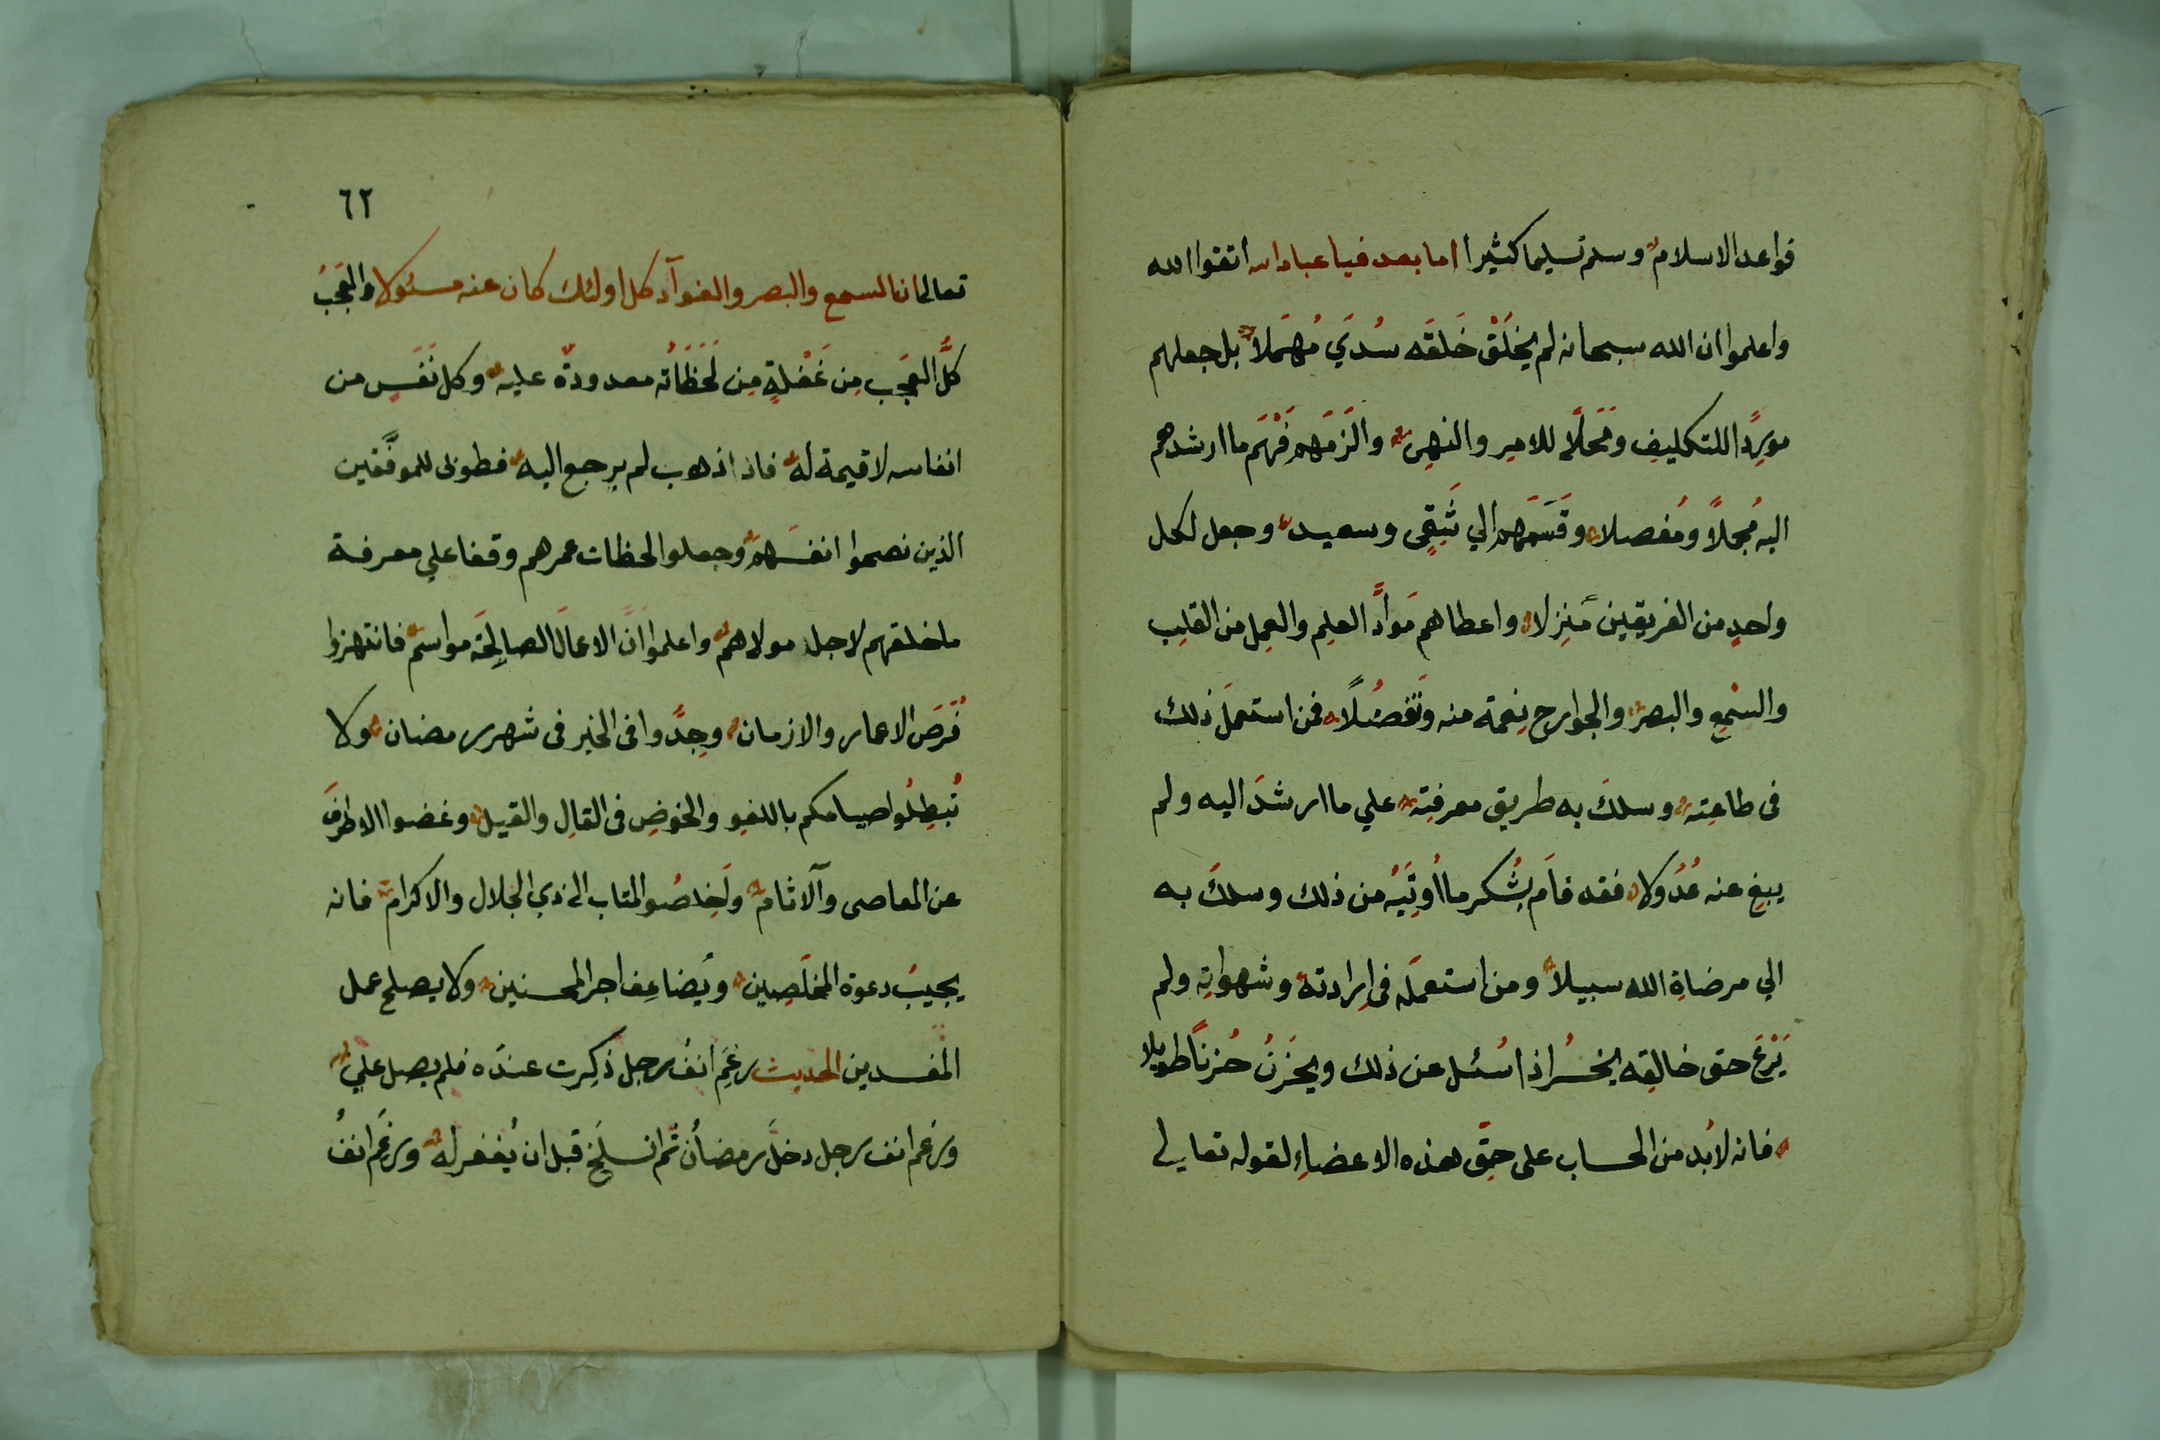 قواعد الاسلام وسلم تسليما كثيرا اما بعد فيا عباد الله اتقوا الله
واعلموا ان الله سبحانه لم يخلق خلقه سدي مهملا بل جعلهم
موردا للتكليف ومحلا للامر والنهي والزمهم فهم ما ارشدهم
اليه مجملا ومفصلا وقسمهم الي شقي وسعيد وجعل لكل
واحد من الفريقين منزلا واعطاهم مواد العلم والعمل من القلب
والسمع والبصر والجوارح نعمة منه وتفضلا فمن استعمل ذلك
في طاعته وسلك به طريق معرفته علي ما ارشد اليه ولم
يبغ عنه عدولا فقد قام بشكر ما اوتيه من ذلك وسلك به
الي مرضاة الله سبيلا ومن استعمله في ارادته وشهواته ولم
يرع حق خالقه يخسر اذا سئل عن ذلك ويحزن حزنا طويلا
فانه لابد من الحساب على حق هذه الاعضاء لقوله تعالي
٦٢
تعالى ان السمع والبصر والفوآد كل اولئك كان عنه مسئولا والعجب
كل العجب من غفلة من لحظاته معدودة عليه وكل نفس من
انفاسه لا قيمة له فاذا ذهب لم يرجع اليه فطوبى للموفقين
الذين نصحوا انفسهم وجعلوا لحظات عمرهم وقفا علي معرفة
ما خلقهم لاجله مولاهم واعلموا ان الاعمال الصالحة مواسم فانتهزوا
فرص الاعمار والازمان وجدوا في الخير في شهر رمضان ولا
تبطلوا صيامكم باللغو والخوض في القال والقيل وغضوا الاطرف
عن المعاصى والآثام ولخلصوا المتاب الى ذي الجلال والاكرام فانه
يجيب دعوة المخلصين ويضاعف اجر المحسنين ولا يصلح عمل
المفسدين الحديث رغم انف رجل ذكرت عنده فلم يصل علي
ورغم انف رجل دخل رمضان ثم انسلخ قبل ان يغفر له ورغم انف